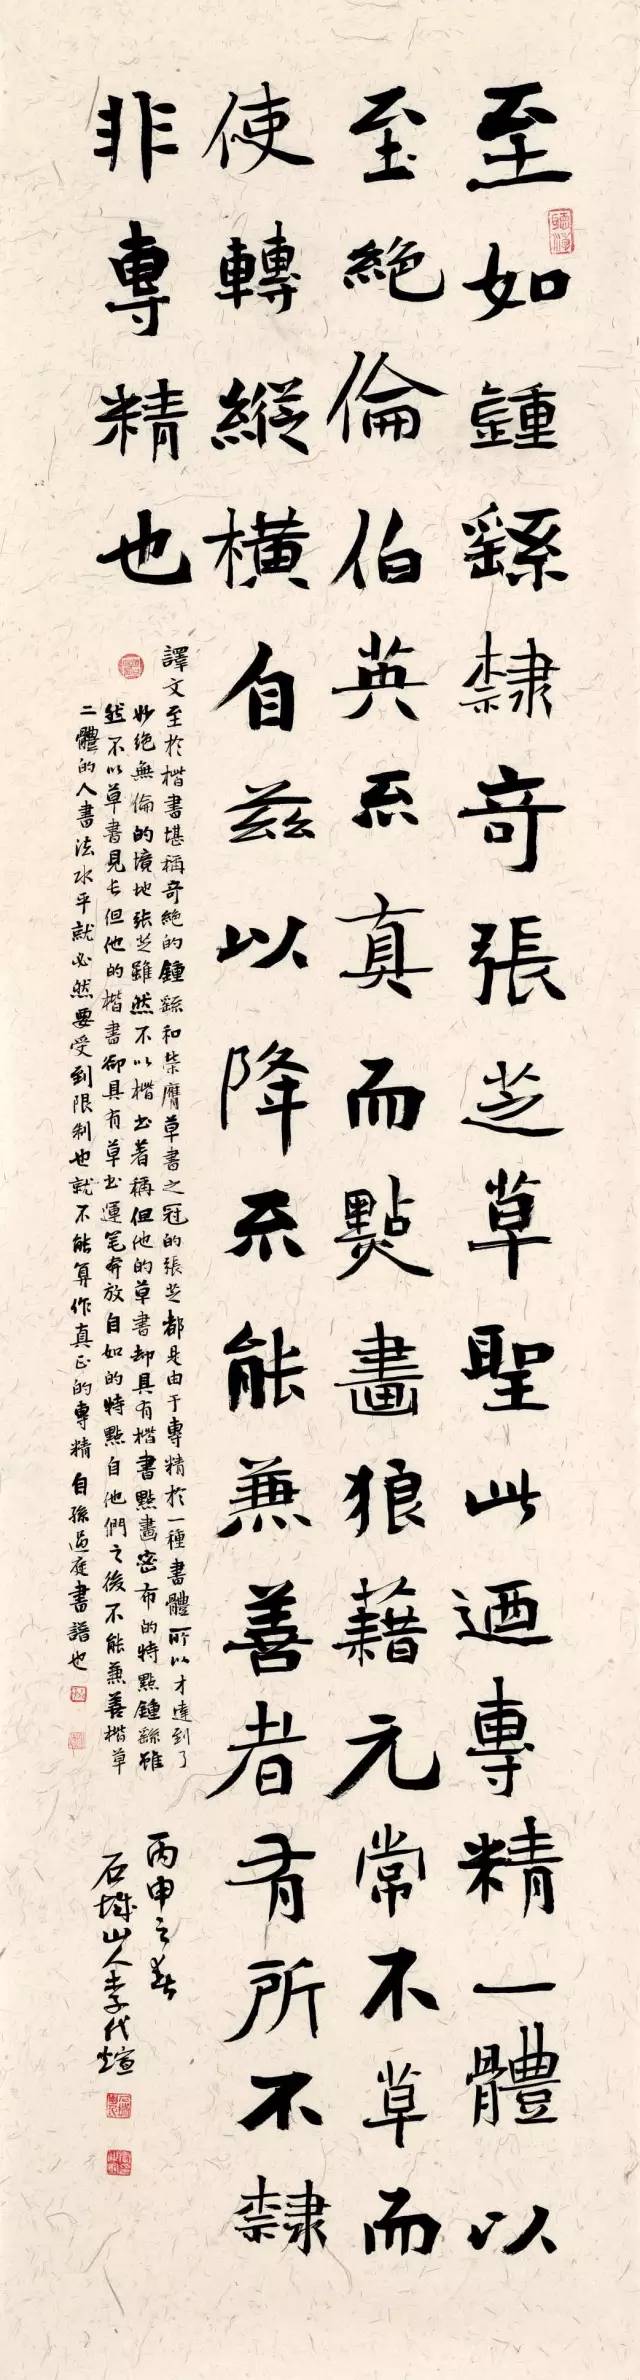 至如鍾繇隸奇張芝草聖此迺專精一體以
至絕倫伯英不真而點畫狼藉元常不草而
使轉縱橫自茲以降不能兼善者有所不隸
非專精也
譯文至於楷書堪稱奇絕的鍾繇和榮膺草書之冠的張芝都是由于專精於一種書體所以才達到了
妙绝無倫的境地张芝雖然不以楷书著稱但他的草書却具有楷書點畫密布的特點鍾繇雖
然不以草書見长但他的楷書卻具有草书運笔奔放自如的特點自他們之後不能兼善楷草
二體的人書法水平就必然要受到限制也就不能算作真正的專精自孫過庭書譜也
丙申之春
石城山人李代煊